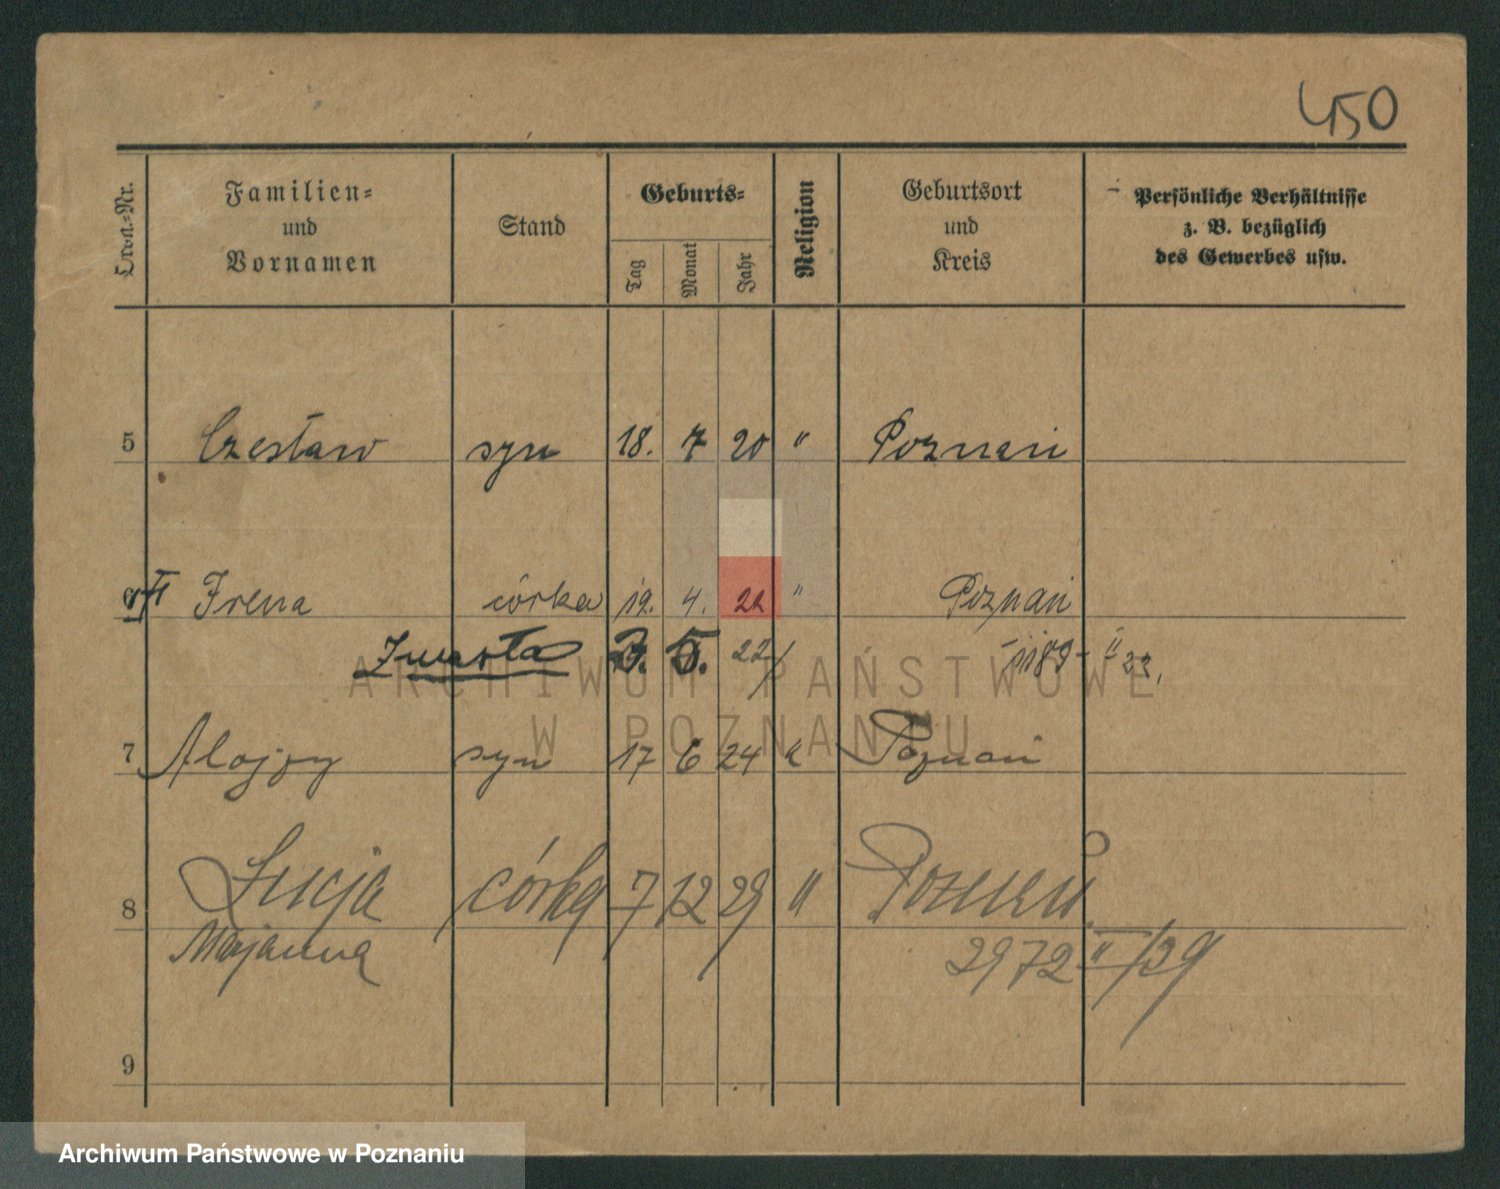 450
Ordn.-Nr.
Familien-
und
Vornamen
Stand
Geburts-
Tag
Monat
Jahr
Religion
Geburtsort
und
Kreis
Persönliche Verhältnisse
z. B. bezüglich
des Gewerbes usw.
5 Czesław syn 18. 7 20 " Poznań
6 Irena córka 19. 4. 22 " Poznań
Zmarła 3. 5. 22
ARCHIWUM PAŃSTWOWE
W POZNANIU
7 Alojzy syn 17 6 24 Poznań
8 Łucja córka 7 12 29 " Poznań
Marjanna 2972 II/29
9
Archiwum Państwowe w Poznaniu